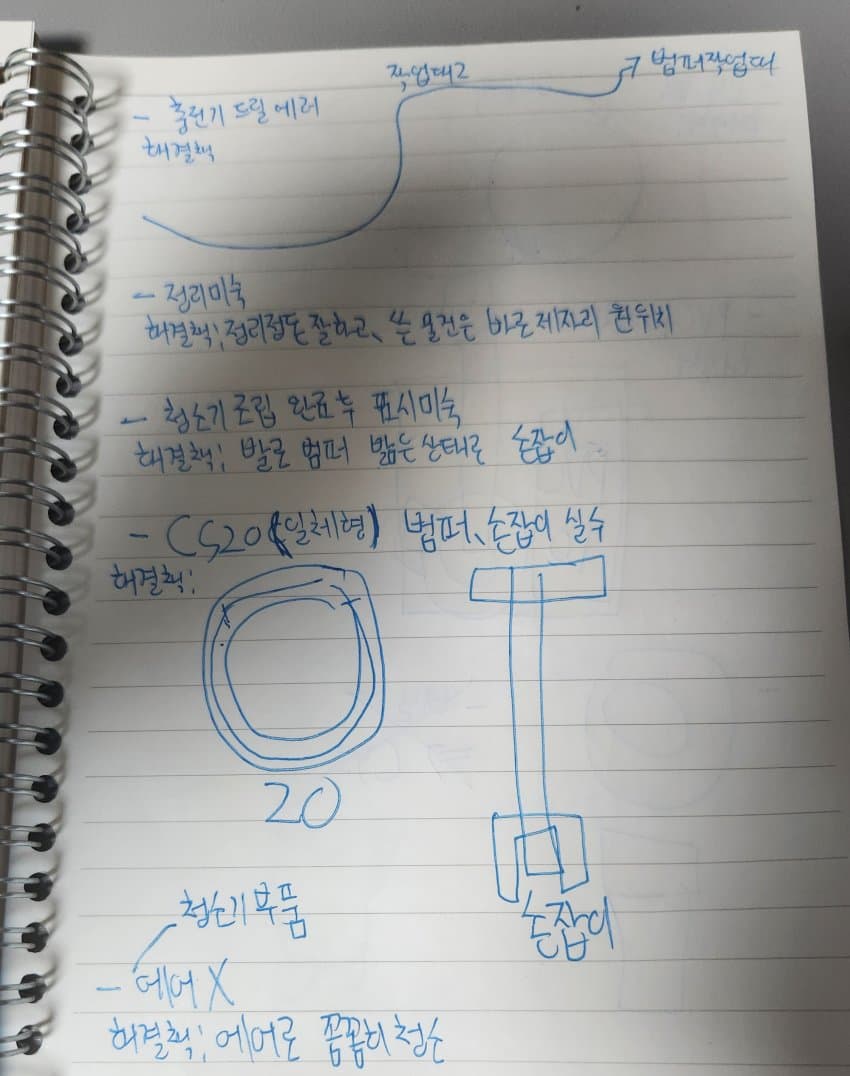 작업대2
범퍼작업대
- 충전기 드릴 에러
해결책
- 정리미숙
해결책; 정리정돈 잘하고, 쓴 물건은 바로 제자리 원위치
- 청소기 조립 완료후 표시미숙
해결책; 발로 범퍼 밟은상태로 손잡이
- CS20(일체형) 범퍼, 손잡이 실수
해결책;
20
손잡이
청소기 부품
- 에어 X
해결책; 에어로 꼼꼼히 청소